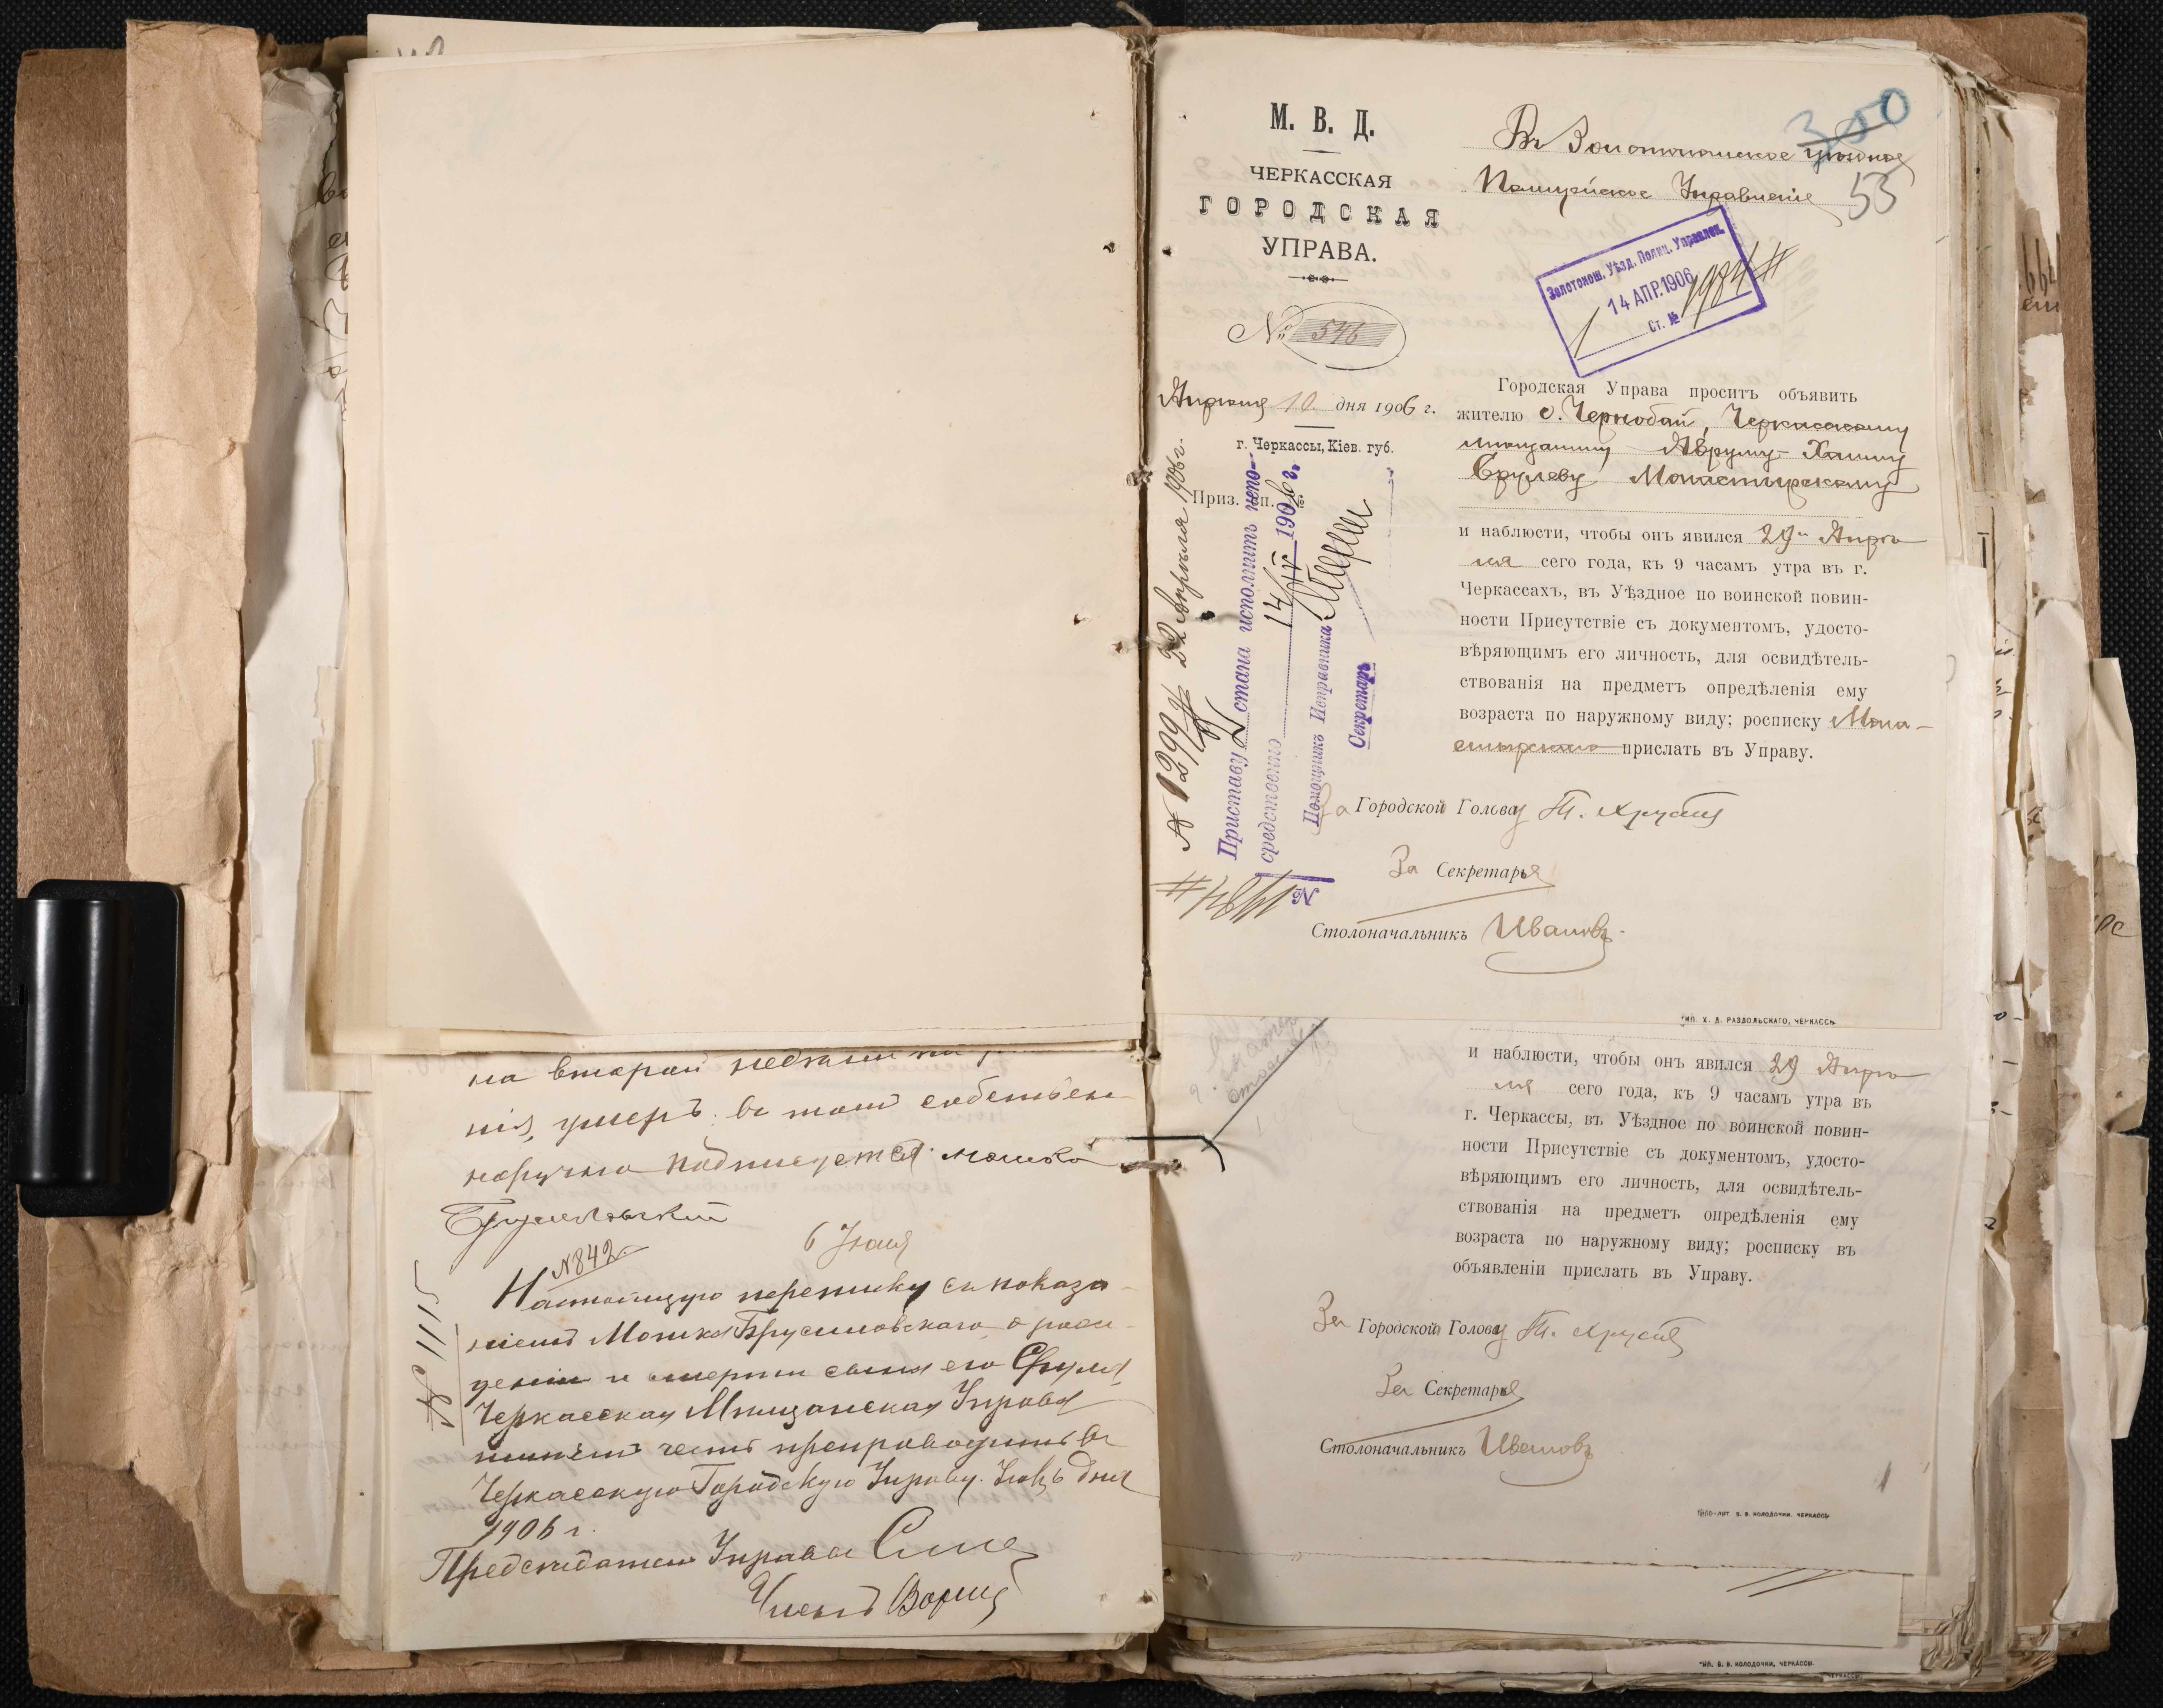 на второй недели
нія, умеръ. въ томъ собствен-
норучно подписуется мошко
Брусиловскій
6 Іюня
№ 842
№ 1115
Настоящую переписку съ показа-
ніемъ Мошка Брусиловскаго о рож-
деніи и смерти сына его Сруля,
Черкасская Мѣщанская Управа
имѣетъ честь препроводить въ
Черкасскую Городскую Управу. Іюня 6 дня
1906 г.
Предсѣдатель Управы
Членъ
М. В. Д.
ЧЕРКАССКАЯ
ГОРОДСКАЯ
УПРАВА.
№ 546
Апрѣля 10 дня 1906 г.
г. Черкассы, Кіев. губ.
Приз. сп. №
300
Въ Золотоношское уѣздное
Полицейское Управленіе
53
Золотонош. Уѣзд. Полиц. Управлен.
14 АПР. 1906
Ст. № 1984
Городская Управа проситъ объявить
жителю с. Чернобай, Черкасскому
мѣщанину Авруму-Хаиму
Срулеву Монастырскому
и наблюсти, чтобы онъ явился 29 Апрѣ-
ля сего года, къ 9 часамъ утра въ г.
Черкассахъ, въ Уѣздное по воинской повин-
ности Присутствіе съ документомъ, удосто-
вѣряющимъ его личность, для освидѣтель-
ствованія на предметъ опредѣленія ему
возраста по наружному виду; росписку Мона-
стырскаго прислать въ Управу.
За Городской Голову Т. Хрусть
За Секретаря
Столоначальникъ Ивановъ
№ 1299 22 Апрѣля 1906 г.
Приставу 2 стана исполнить непо-
средственно 14/IV 1906 г.
Помощникъ Исправника
Секретарь
№ 1984
ТИП. Х. Д. РАЗДОЛЬСКАГО, ЧЕРКАССЫ
и наблюсти, чтобы онъ явился 29 Апрѣ-
ля сего года, къ 9 часамъ утра въ
г. Черкассы, въ Уѣздное по воинской повин-
ности Присутствіе съ документомъ, удосто-
вѣряющимъ его личность, для освидѣтель-
ствованія на предметъ опредѣленія ему
возраста по наружному виду; росписку въ
объявленіи прислать въ Управу.
За Городской Голову Т. Хрусть
За Секретаря
Столоначальникъ Ивановъ
ТИПО-ЛИТ. В. В. КОЛОДОЧКИ, ЧЕРКАССЫ
ТИП. В. В. КОЛОДОЧКИ, ЧЕРКАССЫ.
ЧЕРКАССЫ